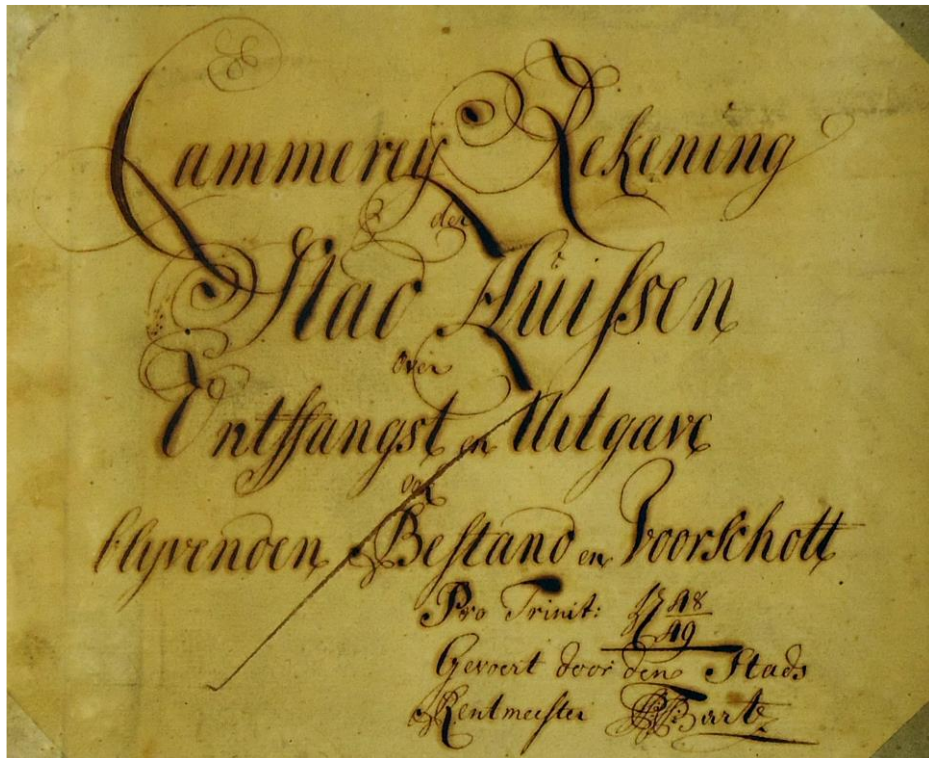 Cammerij Rekening
der
Stad Huissen
over
Ontffangst en Uitgave
ook
blyvenden Bestand en Voorschott
Pro Trinit: 17 48/49
Gevoert door den Stads
Rentmeister